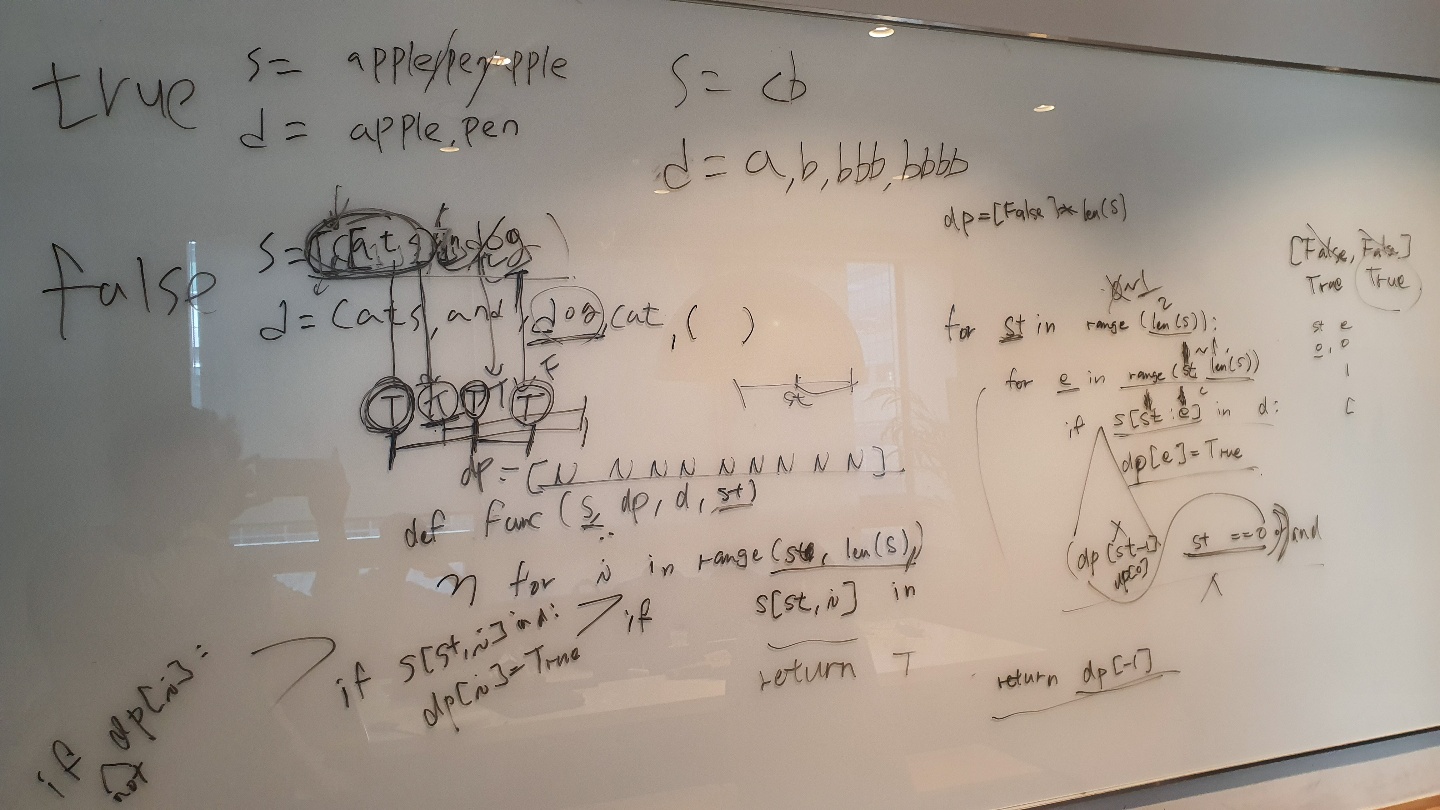 true
s= apple/pen/apple
d= apple, pen
s= cb
d= a, b, bbb, bbbb
false
s=
d= Cats, and, dog, cat, ( )
T T T T
F
dp = [N N N N N N N N].
def func (s, dp, d, st)
for i in range(st, len(s))
if s[st,i] in
return T
if s[st,i] in d:
dp[i]=True
if not dp[i]:
st
dp=[False]*len(s)
2
for st in range (len(s)):
for e in range(st len(s))
if s[st:e] in d:
dp[e]=True
(dp[st-1] st ==0) and
dp[0]
return dp[-1]
[False, False]
True True
st e
0, 0
1